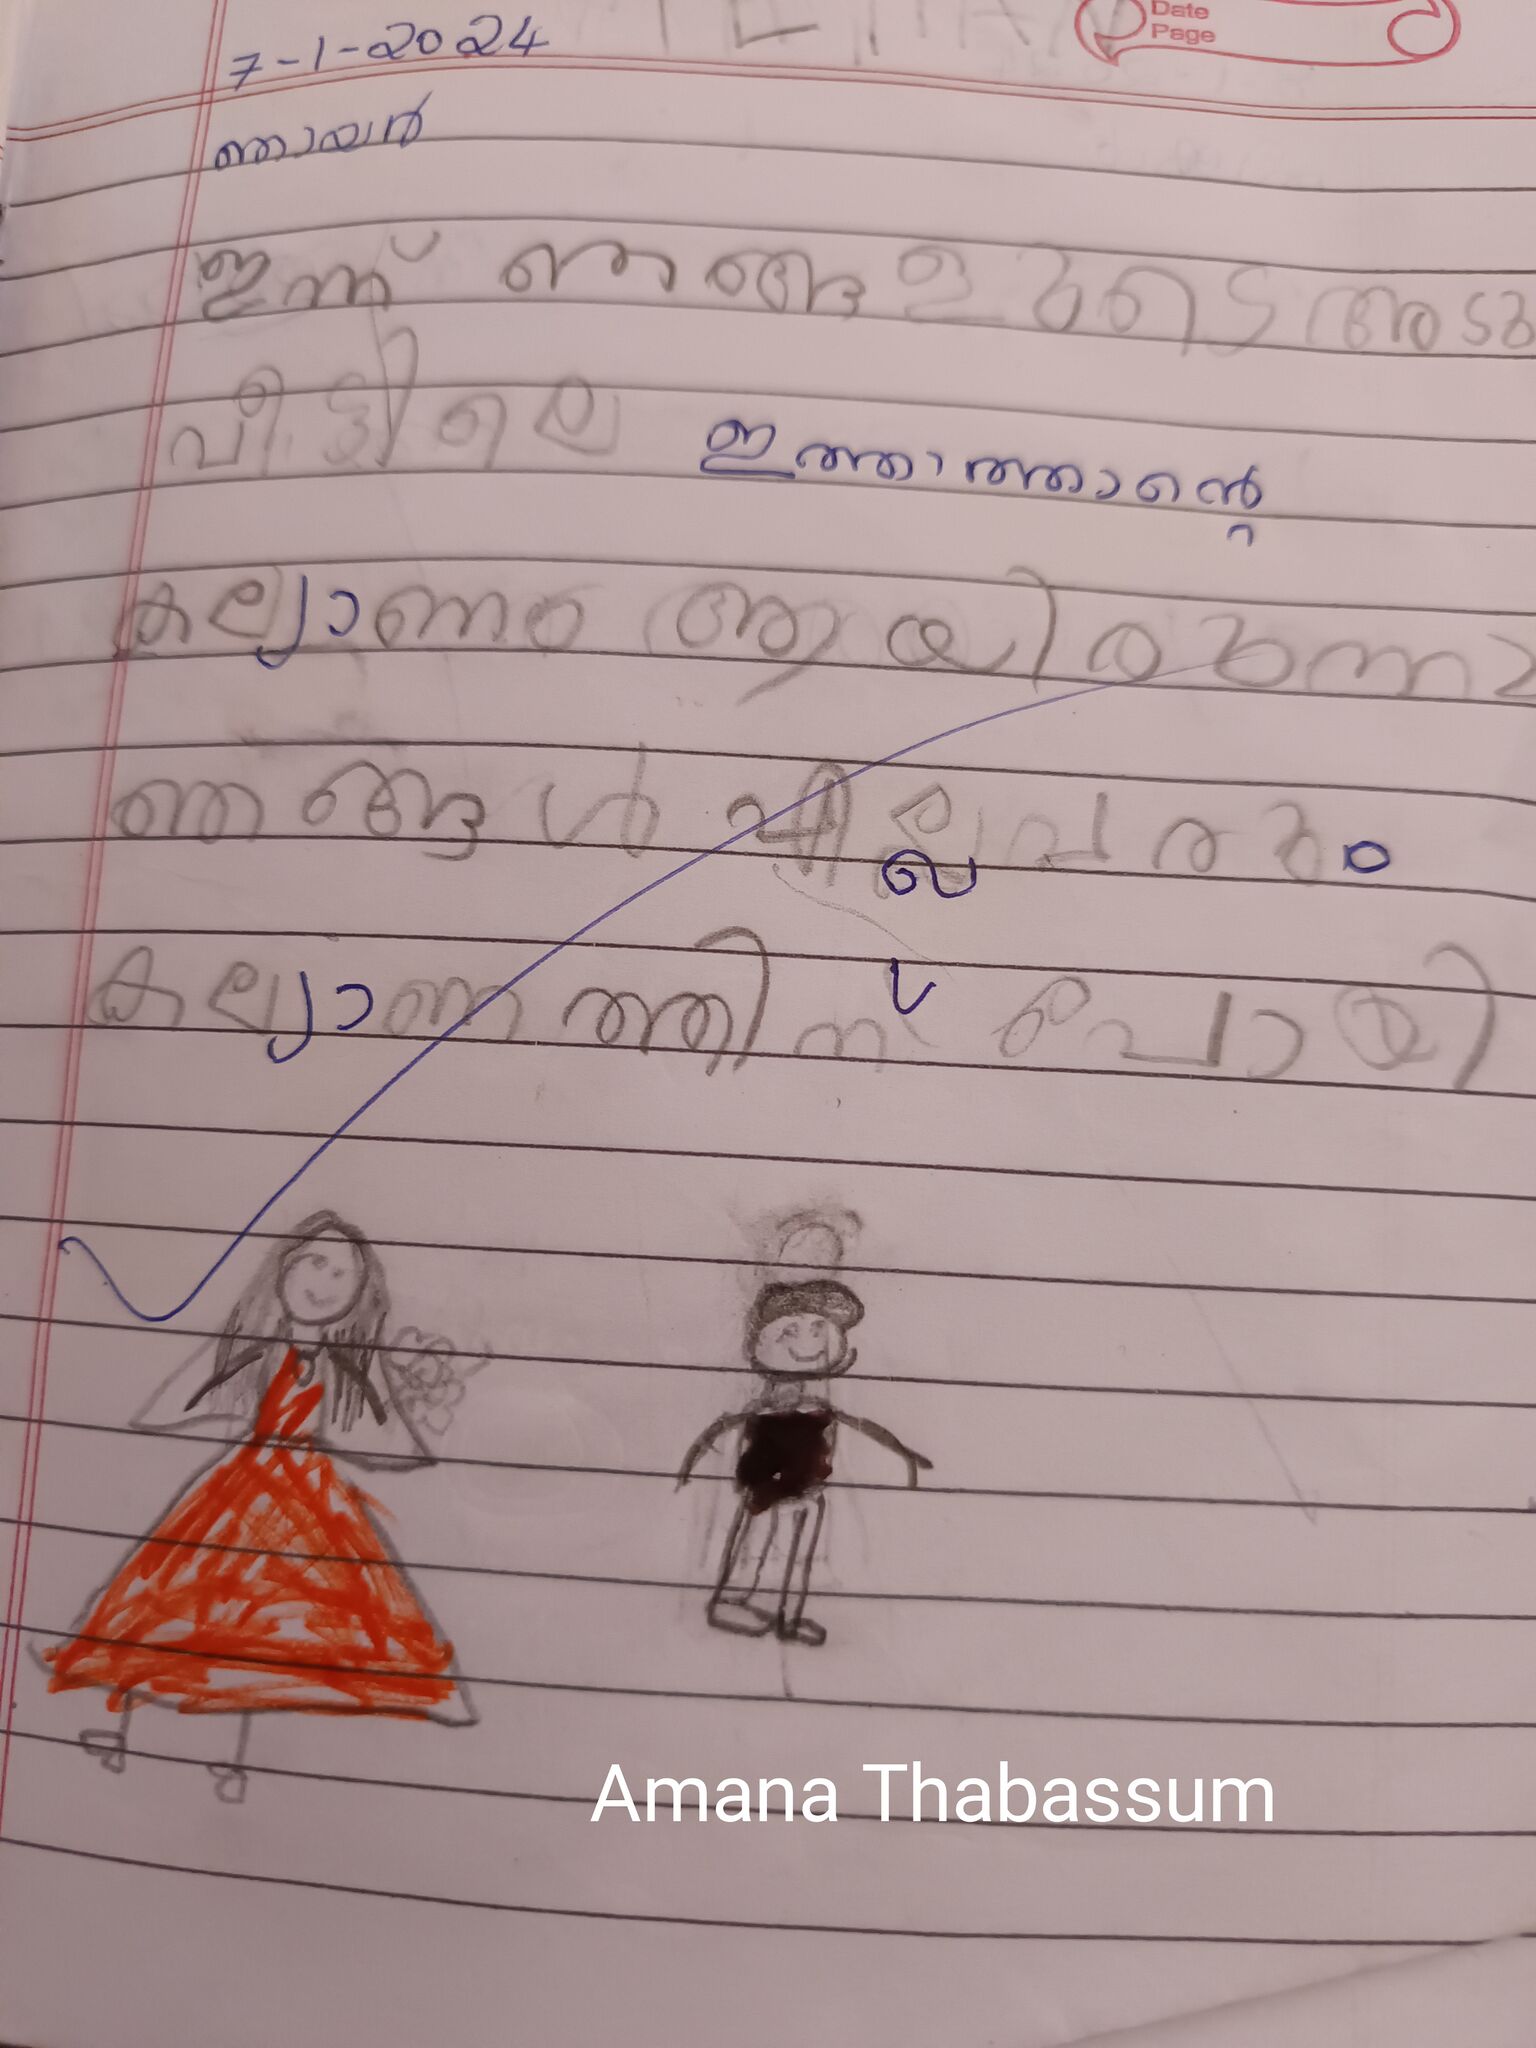 Date
Page
7-1-2024
ഞായർ
ഇന്ന് ഞങ്ങളുടെ അടു
വീട്ടിലെ ഇത്താത്താന്റെ
കല്യാണം ആയിരുന്നു
ഞങ്ങൾ എല്ലാപരും
കല്യാണത്തിന് പോയി
Amana Thabassum